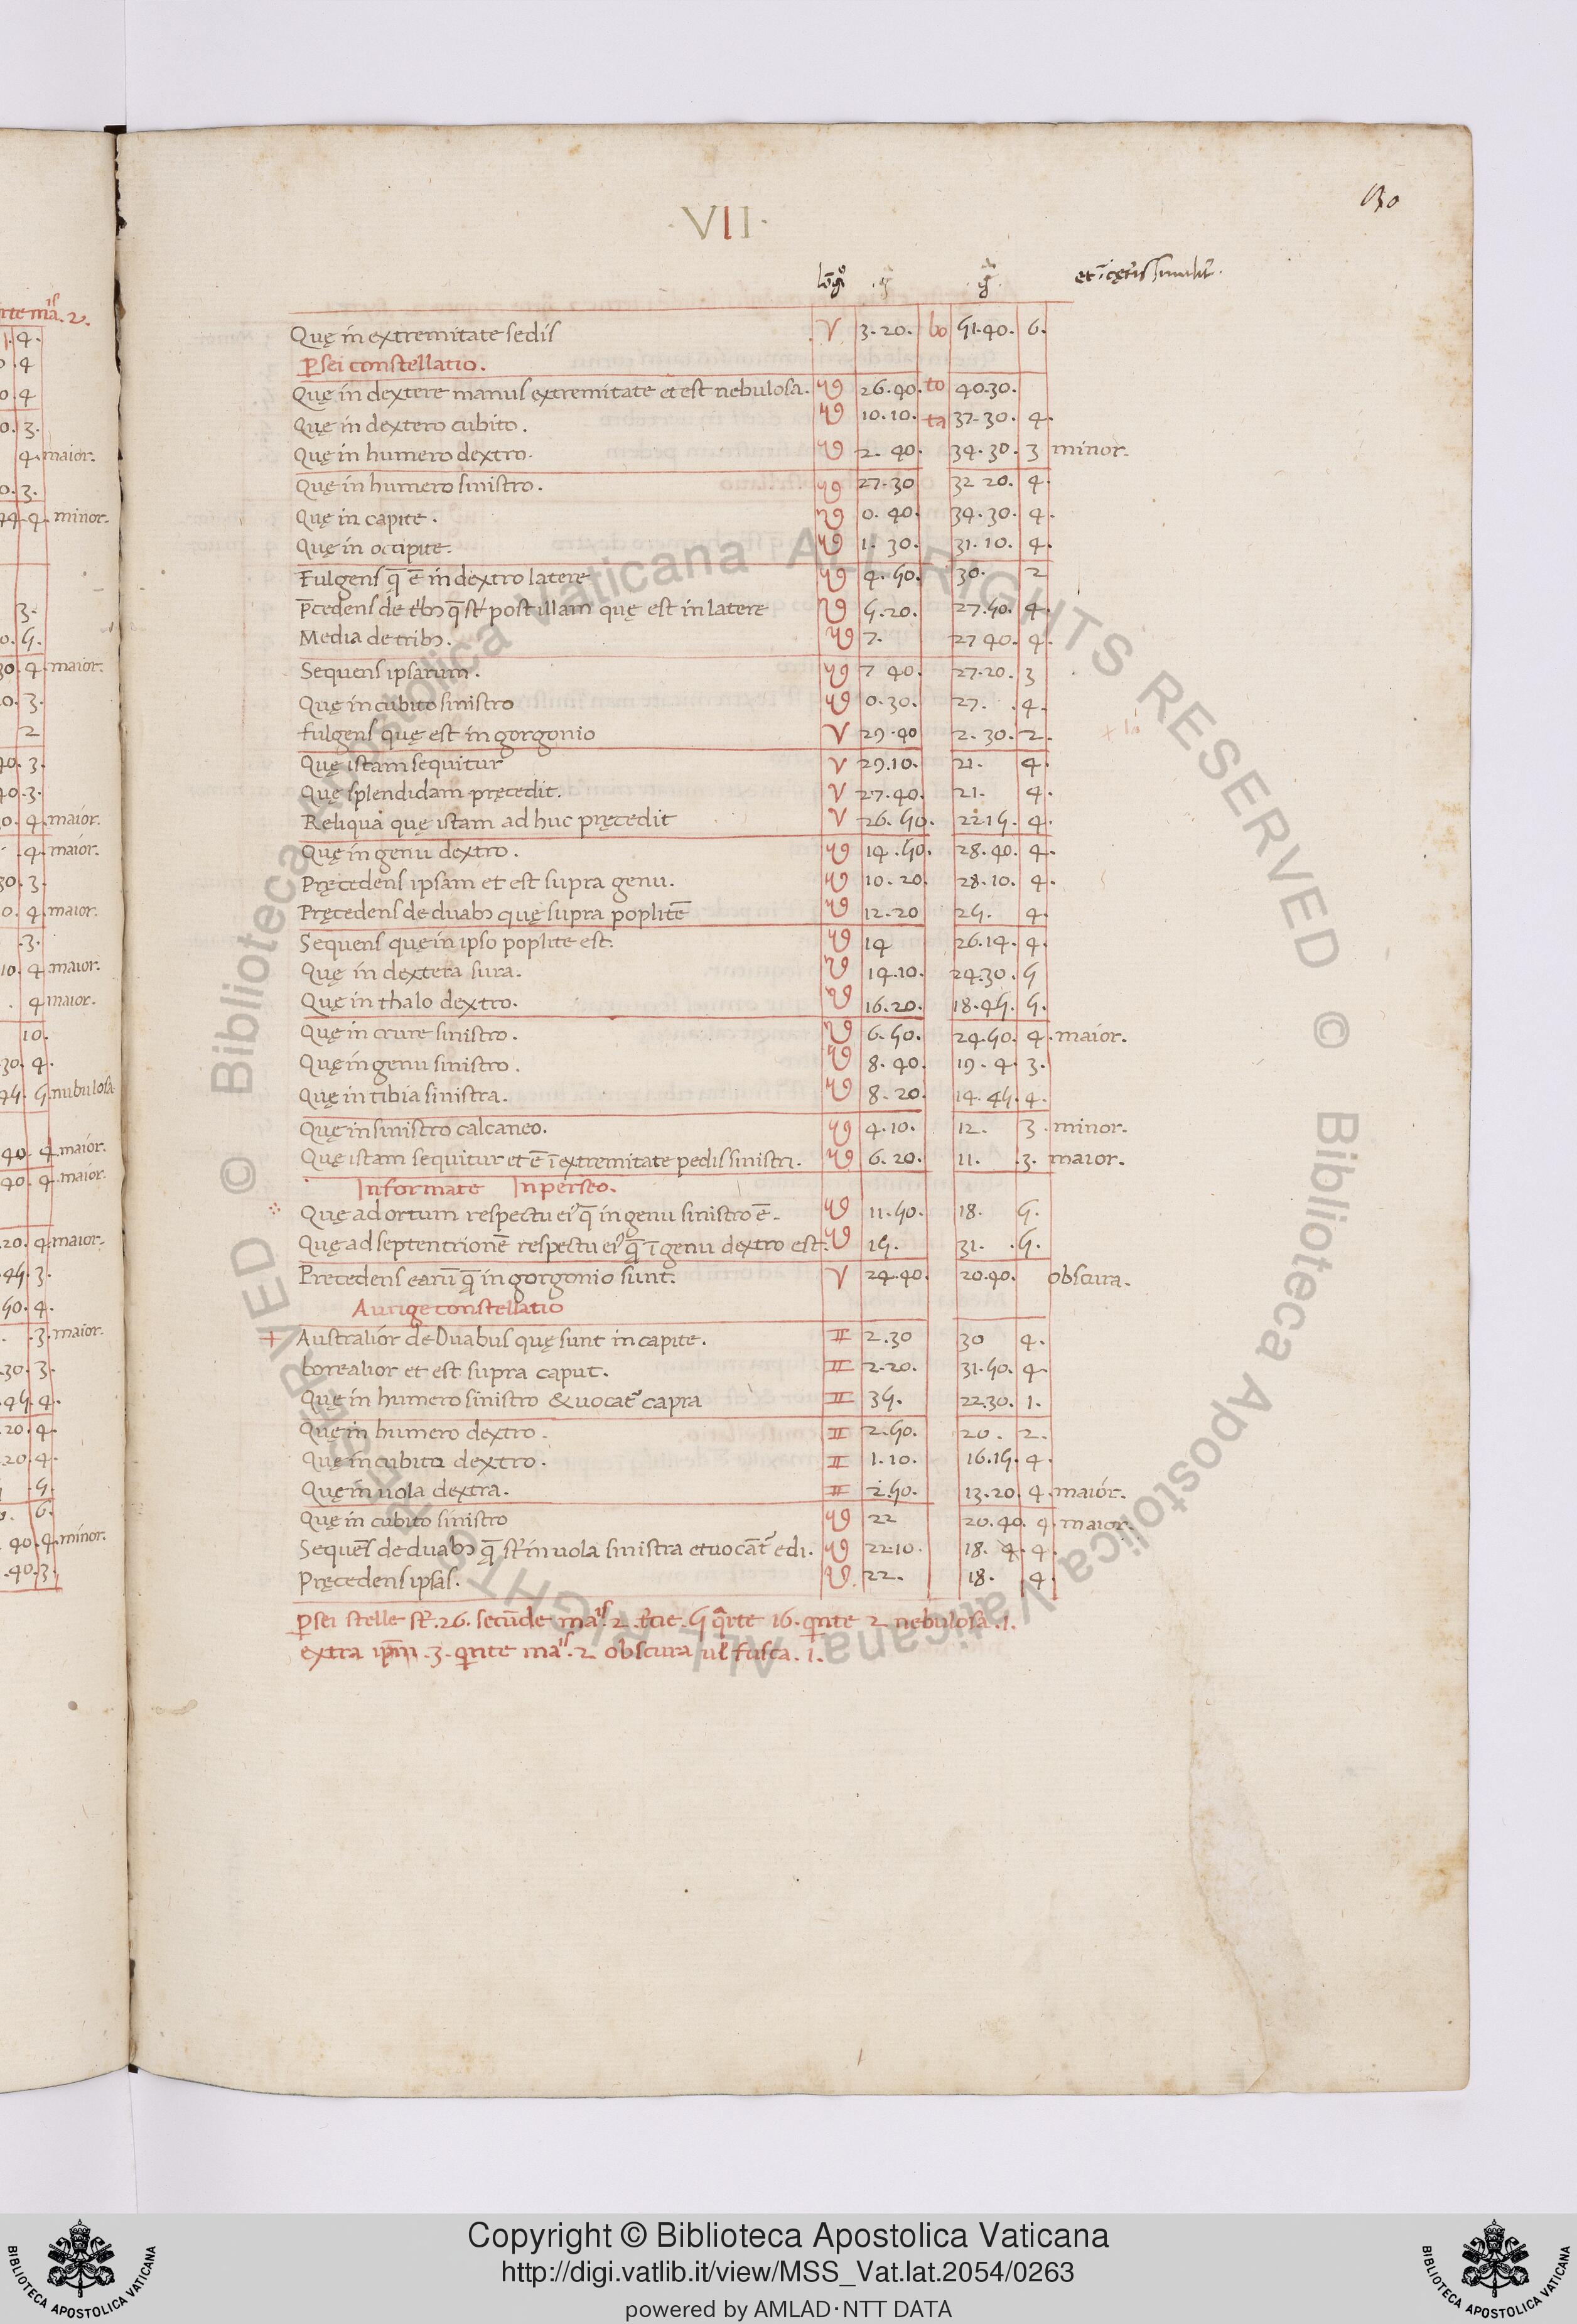 130
·VII·
et ī cęteris similiter.
Quę in extremitate sedis ♈ 3·20· bo 51·40· 6·
Persei constellatio.
Quę in dextere manus extremitate et est nebulosa. ♉ 26·40· to 40·30·
Quę in dextero cubito. ♉ 10·10· ta 37·30· 4·
Quę in humero dextro. ♉ 2·40· 34·30· 3 minor·
Quę in humero sinistro. ♉ 27·30 32 20· 4·
Quę in capite. ♉ 0·40· 34·30· 4·
Quę in occipite. ♉ 1·30· 31·10· 4·
Fulgens q̄ ē in dextro latere ♉ 4·50· 30· 2
P̄cedens de tribꝫ q̄ st̄ post illam quę est in latere ♉ 5·20· 27·50· 4·
Media de tribꝫ. ♉ 7· 27 40· 4·
Sequens ipsarum. ♉ 7 40· 27·20· 3
Quę in cubito sinistro ♉ 0·30· 27· ·4·
fulgens quę est in gorgonio ♈ 29·40 2·30· 2·
Quę istam sequitur ♈ 29·10· 21· 4·
Quę splendidam pręcedit. ♈ 27·40· 21· 4·
Reliqua quę istam ad huc pręcedit ♈ 26·50· 22·15· 4·
Quę in genu dextro. ♉ 14·50· 28·40· 4·
Pręcedens ipsam et est supra genu. ♉ 10·20· 28·10· 4·
Pręcedens de duabꝫ quę supra poplitē ♉ 12·20 25· 4·
Sequens quę in ipso poplite est. ♉ 14 26·14· 4·
Quę in dextera sura. ♉ 14·10· 24·30· 5
Quę in thalo dextro. ♉ 16·20· 18·45· 5·
Quę in crure sinistro. ♉ 6·50· 24·50· 4· maior.
Quę in genu sinistro. ♉ 8·40· 19·4· 3·
Quę in tibia sinistra. ♉ 8·20· 14·45· 4·
Quę in sinistro calcaneo. ♉ 4·10· 12· 3· minor.
Quę istam sequitur et ē ī extremitate pedis sinistri. ♉ 6·20· 11· ·3· maior.
Informate In perseo.
Quę ad ortum respectu eiꝰ q̄ in genu sinistro ē. ♉ 11·50· 18· 5·
Quę ad septentrionē respectu eiꝰ q̄ ī genu dextro est. ♉ 15· 31· ·5·
Precedens earū q̄ in gorgonio sunt. ♈ 24·40· 20·40· obscura.
Aurige constellatio
+ Australior de Duabus quę sunt in capite. ♊ 2·30 30 4·
borealior et est supra caput. ♊ 2·20· 31·50· 4·
Quę in humero sinistro & uocat᷑ capra ♊ 35· 22·30· 1·
Quę in humero dextro. ♊ 2·50· 20· 2·
Quę in cubito dextro. ♊ 1·10· 16·15· 4·
Quę in uola dextra. ♊ 2·50· 13·20· 4· maior.
Quę in cubito sinistro ♉ 22 20·40· 4· maior.
Sequēs de duabꝫ q̄ st̄ in uola sinistra et uocāt᷑ edi. ♉ 22·10· 18· 4· 4·
Pręcedens ipsas. ♉ 22· 18· 4·
ꝑsei stelle st̄. 26. secūde maⁱˢ. 2. t̄cie. 5 q̄rte 16. qīnte 2 nebulosa .1.
extra ip̄m .3. qīnte maⁱˢ. 2 obscura ul̄ fusca. 1.
© Biblioteca Apostolica Vaticana ALL RIGHTS RESERVED
© Biblioteca Apostolica Vaticana ALL RIGHTS RESERVED
BIBLIOTECA APOSTOLICA VATICANA
Copyright © Biblioteca Apostolica Vaticana
http://digi.vatlib.it/view/MSS_Vat.lat.2054/0263
powered by AMLAD·NTT DATA
BIBLIOTECA APOSTOLICA VATICANA